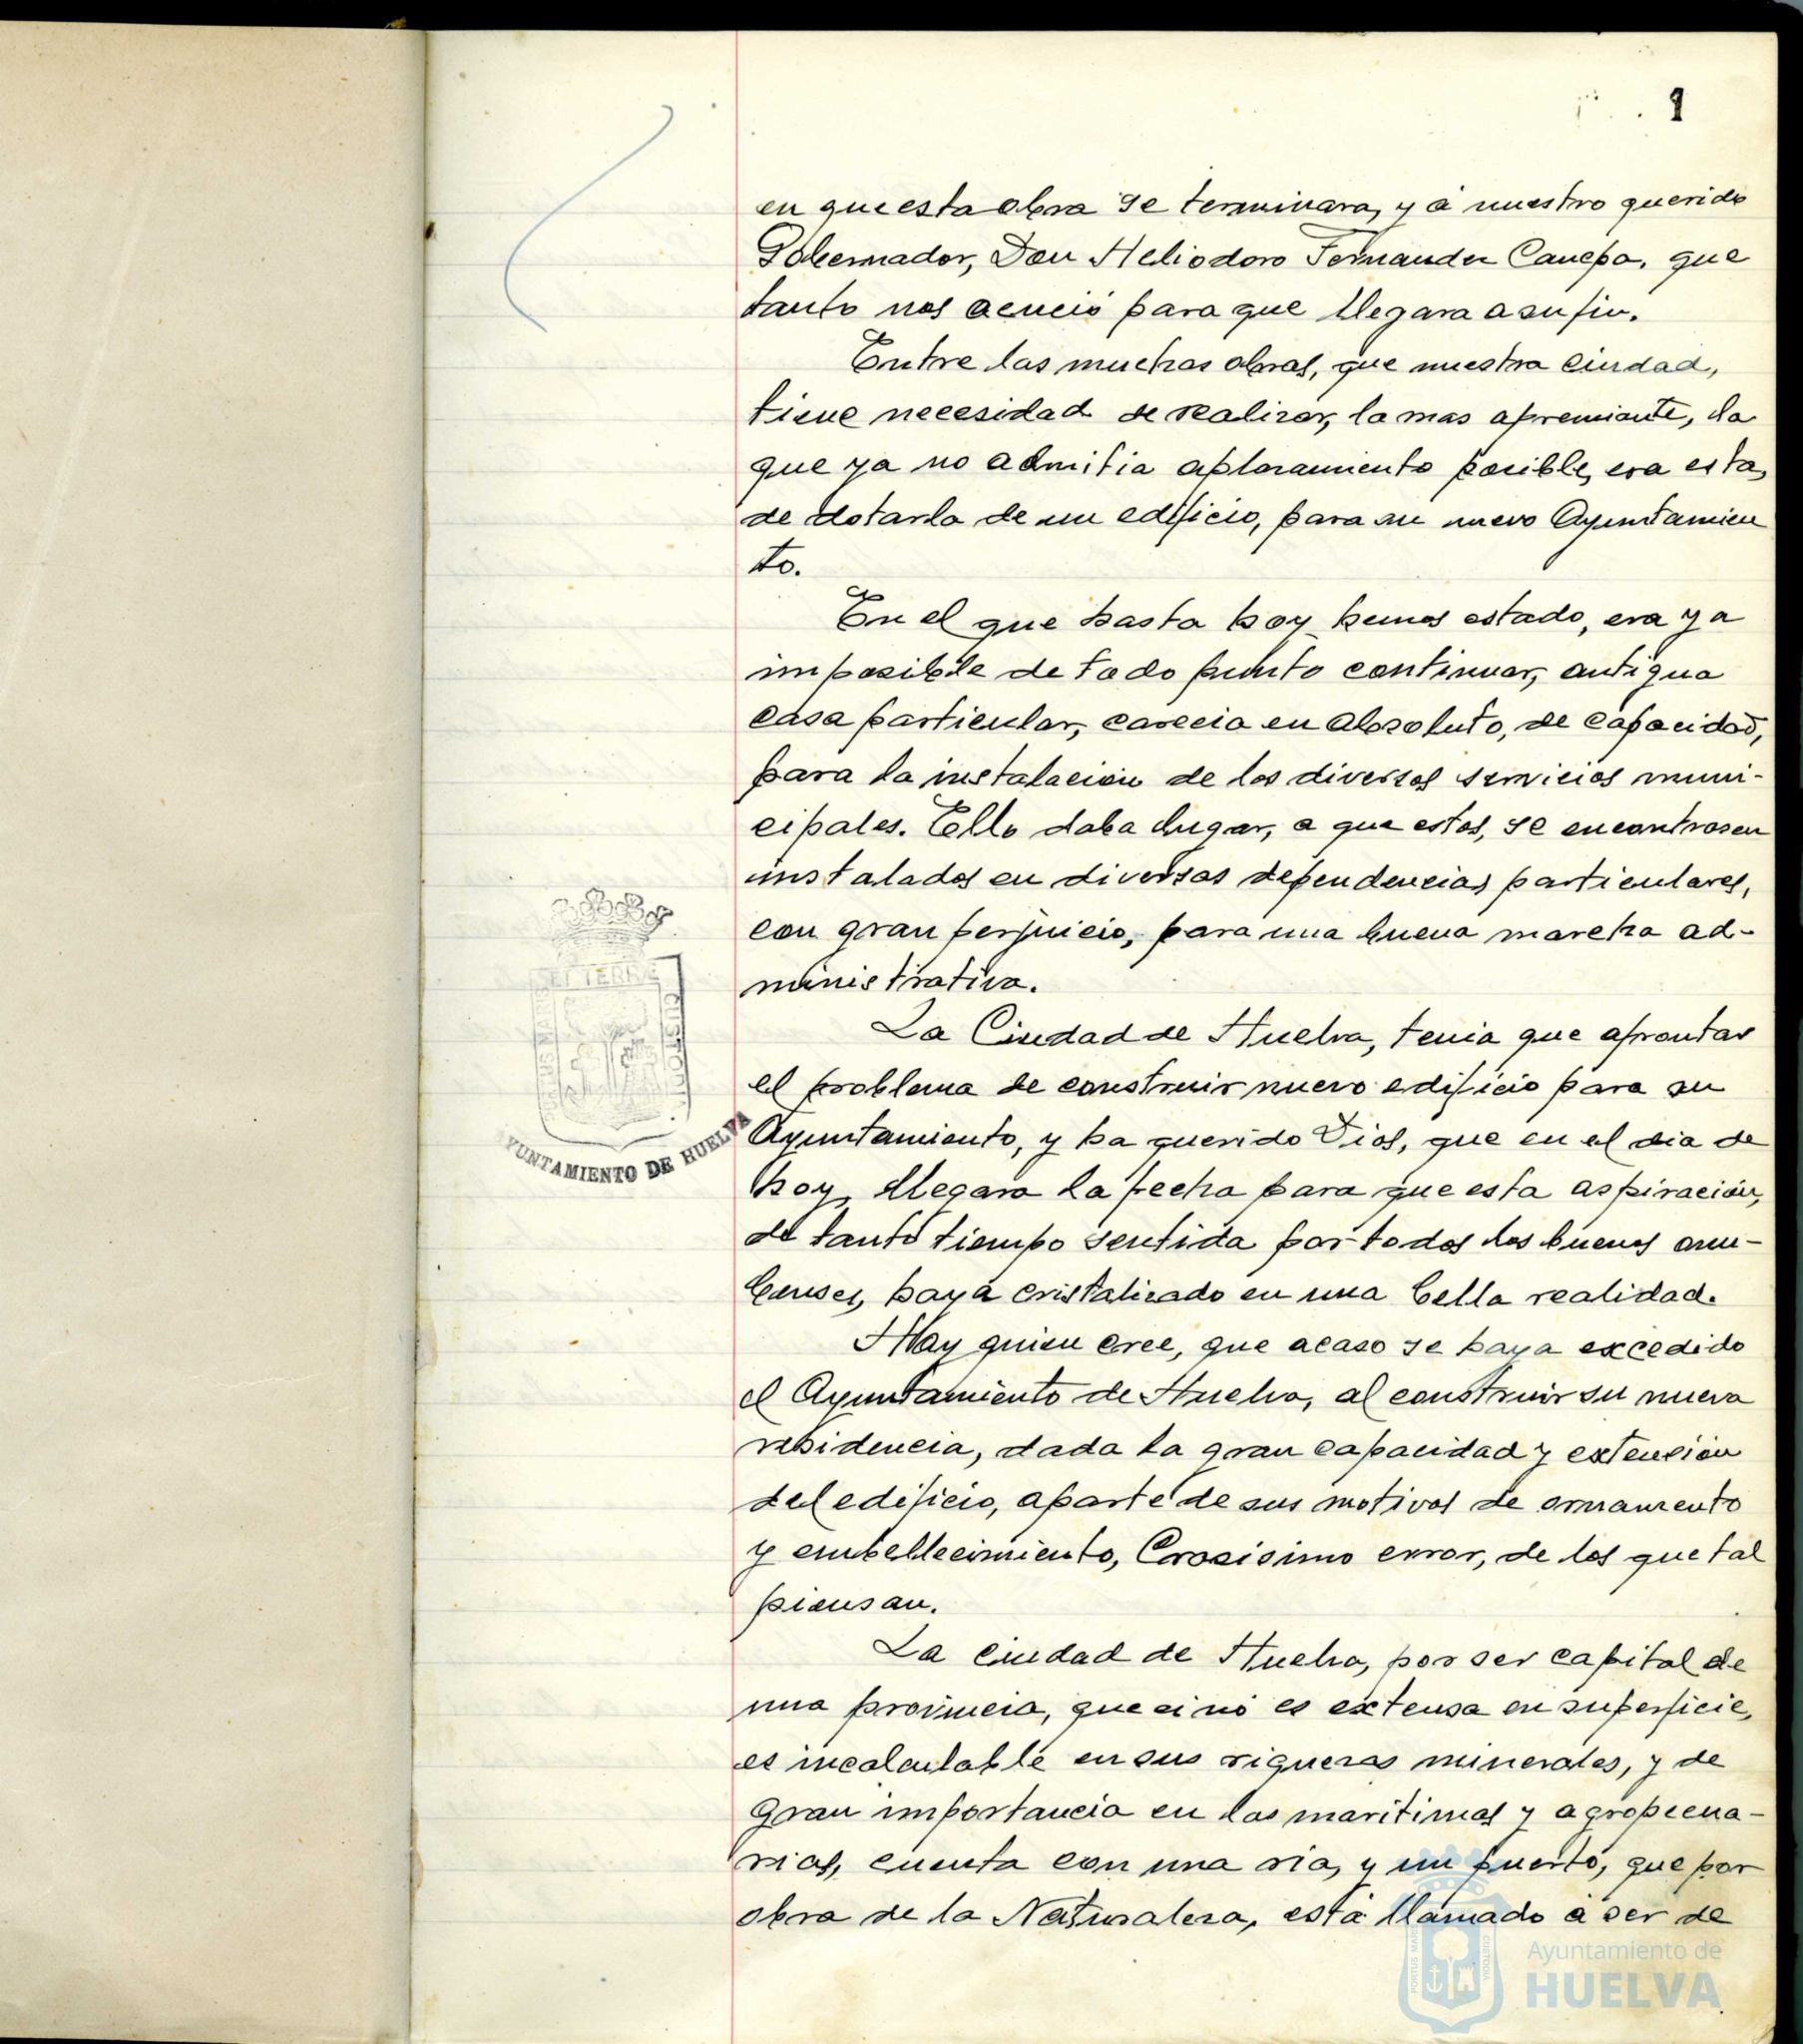 1
en que esta obra se terminara, y á nuestro querido
Gobernador, Don Heliodoro Fernandez Canepa, que
tanto nos acució para que llegara a su fin.
Entre las muchas obras, que nuestra ciudad,
tiene necesidad de realizar, la mas apremiante, la
que ya no admitia aplazamiento posible, era esta,
de dotarla de un edificio, para su nuevo Ayuntamien
to.
En el que hasta hoy hemos estado, era ya
imposible de todo punto continuar, antigua
casa particular, carecia en absoluto, de capacidad,
para la instalación de los diversos servicios muni-
cipales. Ello daba lugar, a que estos, se encontrasen
instalados en diversas dependencias particulares,
con gran perjuicio, para una buena marcha ad-
ministrativa.
La Ciudad de Huelva, tenia que afrontar
el problema de construir nuevo edificio para su
Ayuntamiento, y ha querido Dios, que en el dia de
hoy, llegara la fecha para que esta aspiración,
de tanto tiempo sentida por todos los buenos onu-
benses, haya cristalizado en una bella realidad.
Hay quien cree, que acaso se haya excedido
el Ayuntamiento de Huelva, al construir su nueva
residencia, dada la gran capacidad y extención
del edificio, aparte de sus motivos de ornamento
y embellecimiento, Crasisimo error, de los que tal
piensan.
La ciudad de Huelva, por ser capital de
una provincia, que si nó es extensa en superficie,
es incalculable en sus riquezas minerales, y de
gran importancia en las maritimas y agropecua-
rias, cuenta con una ria, y un puerto, que por
obra de la Naturaleza, está llamado á ser de
YUNTAMIENTO DE HUELVA
Ayuntamiento de
HUELVA